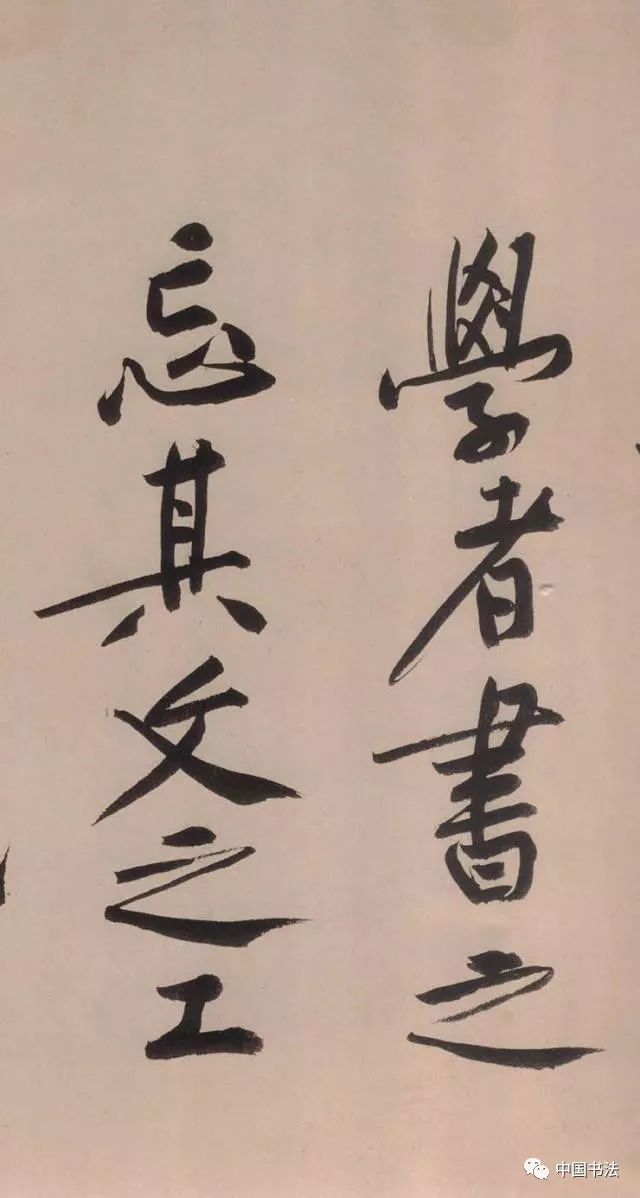 學者書之
忘其文之工
中国书法